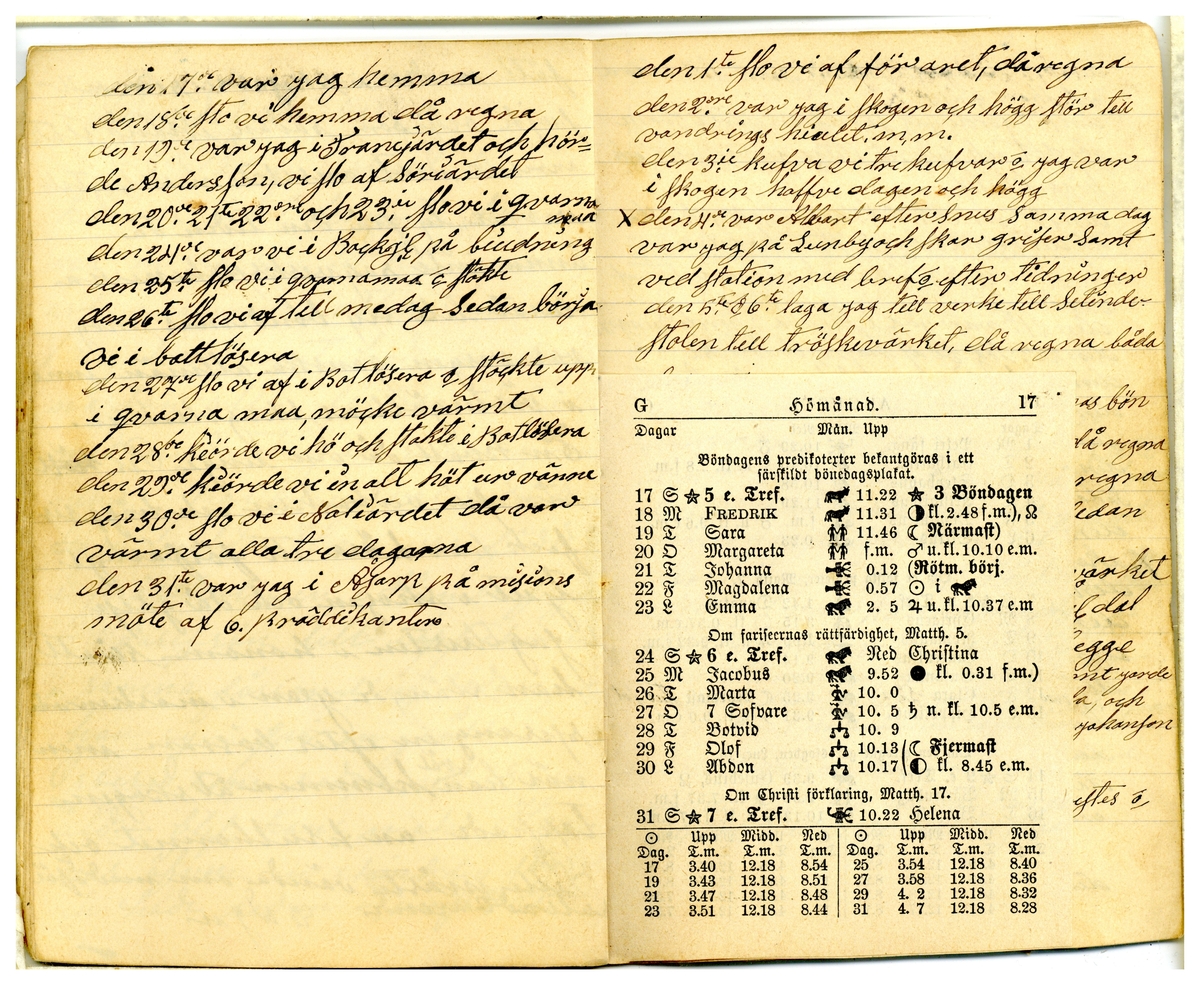 den 17de var jag hemma
den 18de slo vi hemma då regna
den 19de var jag i Framjärdet och hör=
de Andersson, vi slo af Söriärdet
den 20de 21te 22dre och 23je slo vi i qvarna
maa
den 24de var vi i på biudning
den 25te slo vi i qvarnamaa o stökte
den 26te slo vi af tell medag Sedan börja
vi i battlösera
den 27de slo vi af i Botlösera o stöckte upp
i qvarna maa, möcke värmt
den 28de kéörde vi hö och stakte i Botlösera
den 29de kéörde vi in allt höt ur vänne
den 30de slo vi i då var
värmt alla tre dagarna
den 31te var jag i Åsarp på misions
möte af 6. präddikanter
den 1te slo vi af för aret, då regna
den 2dre var jag i skogen och högg stör tell
vandrings m, m.
den 3je kufva vi tre kufvar o, jag var
i skogen haffve dagen och högg
X den 4de var Albart efter Snus Samma dag
var jag på Lunby och skar griser Samt
ved station med bref o efter tidninger
den 5te & 6te laga jag tell verke tell Selinde-
stolen tell tröskevärket, då regna båda
as bön
då regna
regna
Sedan
värket
dal
egge
mt jorde
a, och
Johanson
estes o
G Hömånad. 17
Dagar Mån. Upp
Böndagens predikotexter bekantgöras i ett
särskildt bönedagsplakat.
17 S ★ 5 e. Tref. 11.22 ★ 3 Böndagen
18 M FREDRIK 11.31 ◑ kl. 2.48 f.m.), ☊
19 T Sara 11.46 ☾ Närmast)
20 O Margareta f.m. ♂ u. kl. 10.10 e.m.
21 T Johanna 0.12 (Rötm. börj.
22 F Magdalena 0.57 ☉ i ♌
23 L Emma 2. 5 ♃ u. kl. 10.37 e.m
Om fariseernas rättfärdighet, Matth. 5.
24 S ★ 6 e. Tref. Ned Christina
25 M Jacobus 9.52 ● kl. 0.31 f.m.)
26 T Marta 10. 0
27 O 7 Sofvare 10. 5 ♄ n. kl. 10.5 e.m.
28 T Botvid 10. 9
29 F Olof 10.13 (☾ Fjermast
30 L Abdon 10.17 (◐ kl. 8.45 e.m.
Om Christi förklaring, Matth. 17.
31 S ★ 7 e. Tref. 10.22 Helena
☉ Upp Midd. Ned ☉ Upp Midd. Ned
Dag. T.m. T.m. T.m. Dag. T.m. T.m. T.m.
17 3.40 12.18 8.54 25 3.54 12.18 8.40
19 3.43 12.18 8.51 27 3.58 12.18 8.36
21 3.47 12.18 8.48 29 4. 2 12.18 8.32
23 3.51 12.18 8.44 31 4. 7 12.18 8.28